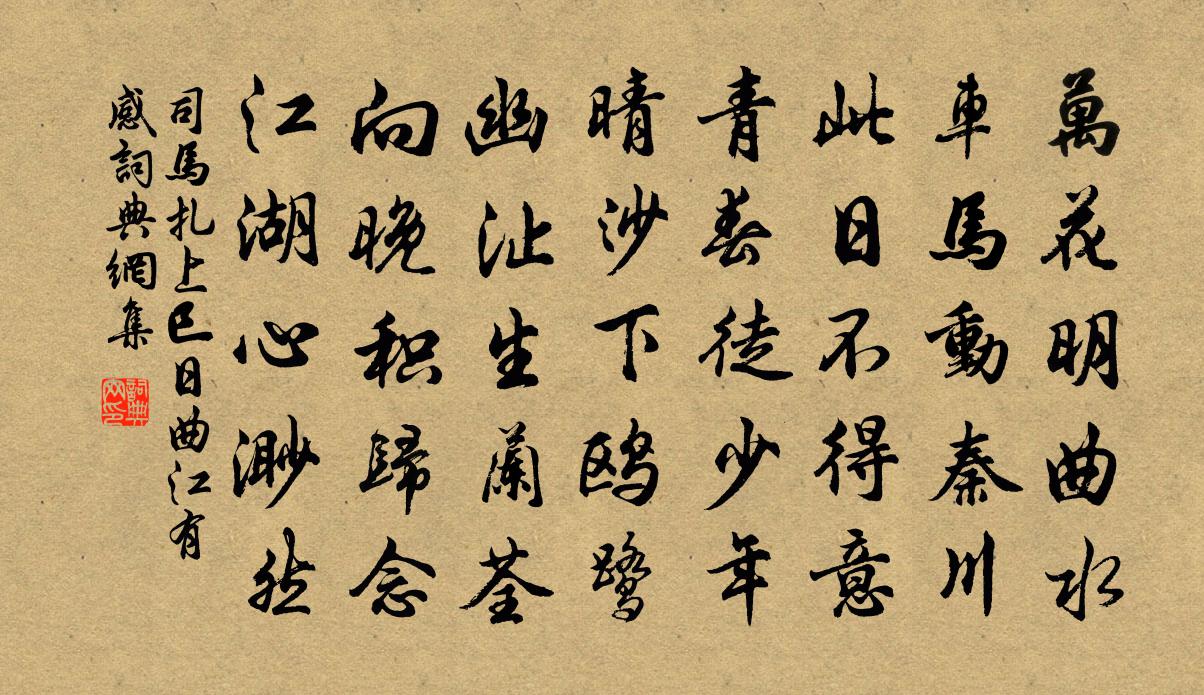 萬花明曲水
車馬動秦川
此日不得意
青春徒少年
晴沙下鸥鹭
幽沚生蘭荃
向晚积歸念
江湖心渺然
司馬扎上巳日曲江有
感詞典網集
詞典
网印